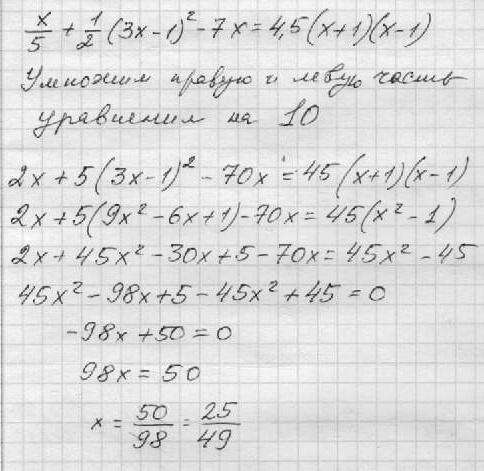 x/5 + 1/2 (3x-1)² - 7x = 4,5(x+1)(x-1)
Умножим правую и левую часть
уравнения на 10
2x + 5(3x-1)² - 70x = 45(x+1)(x-1)
2x + 5(9x² - 6x + 1) - 70x = 45(x² - 1)
2x + 45x² - 30x + 5 - 70x = 45x² - 45
45x² - 98x + 5 - 45x² + 45 = 0
-98x + 50 = 0
98x = 50
x = 50/98 = 25/49